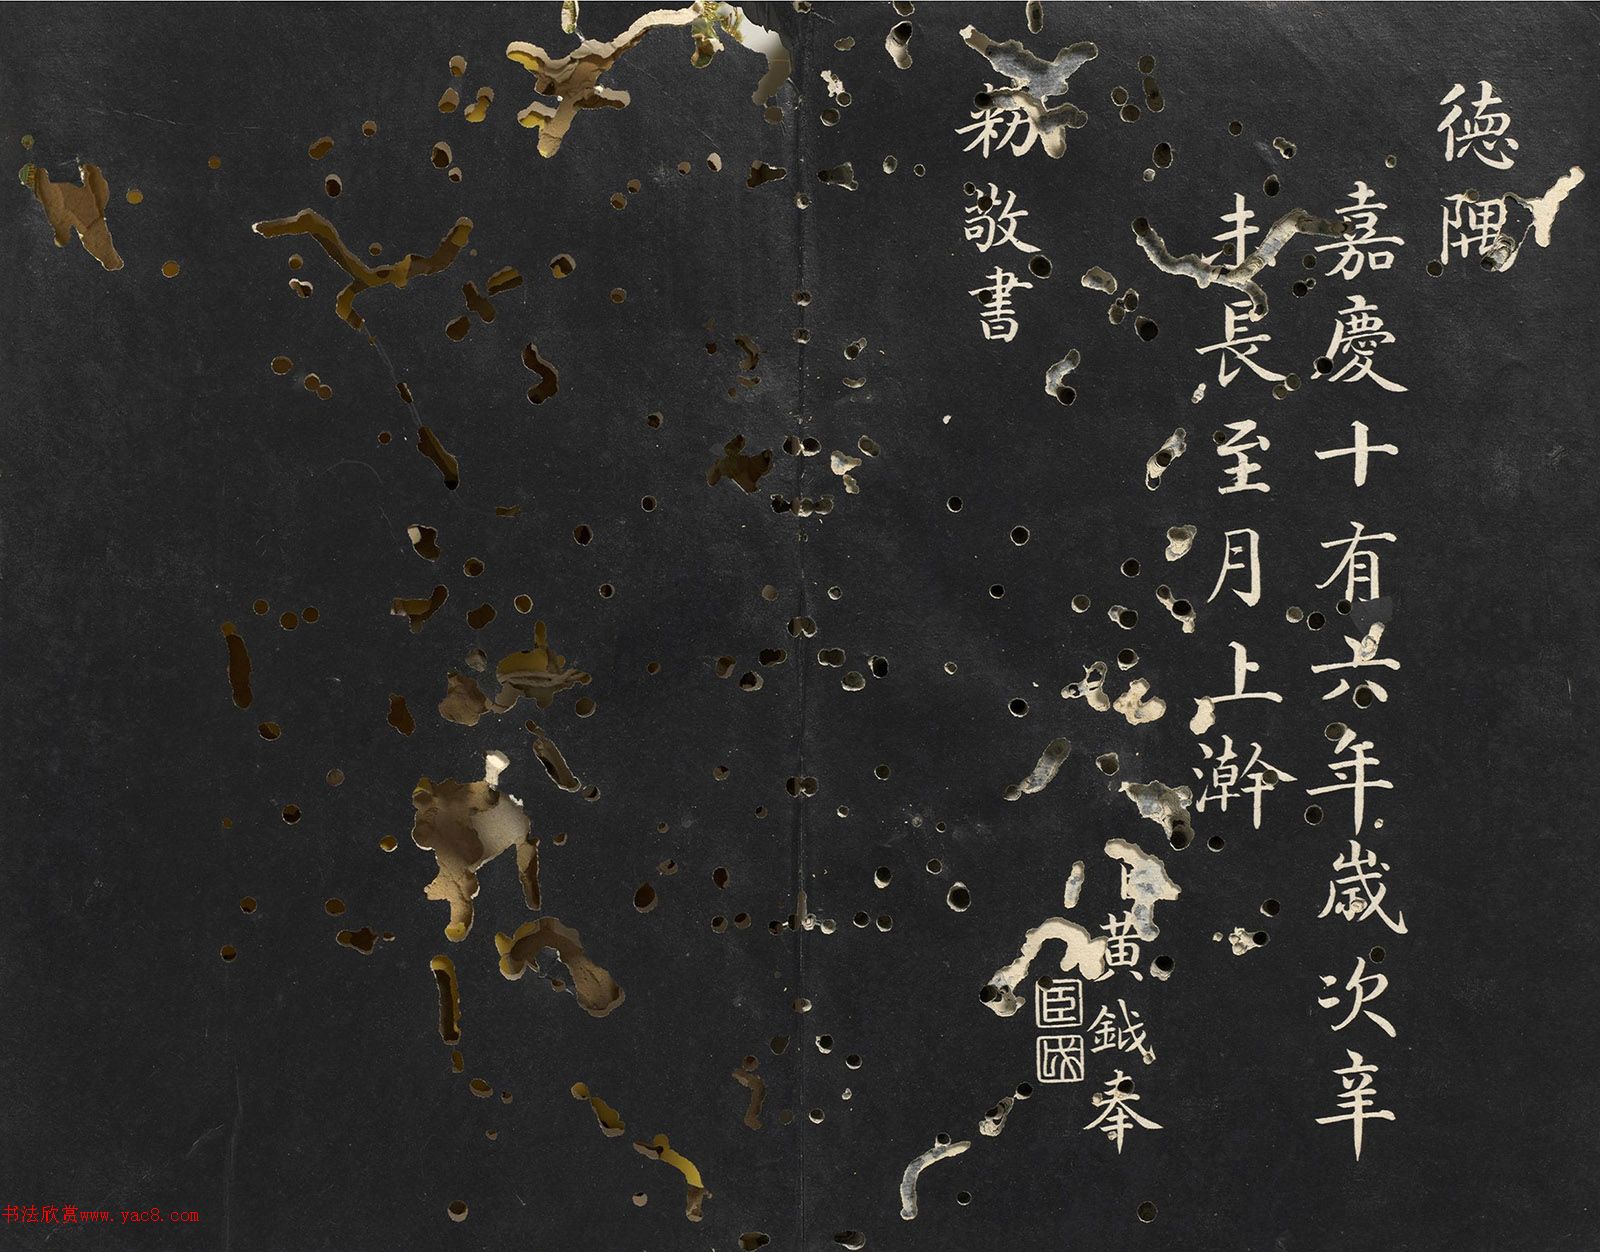 德隅
嘉慶十有六年歲次辛
未長至月上澣
臣黃鉞奉
敕敬書
臣鉞
书法欣赏www.yac8.com